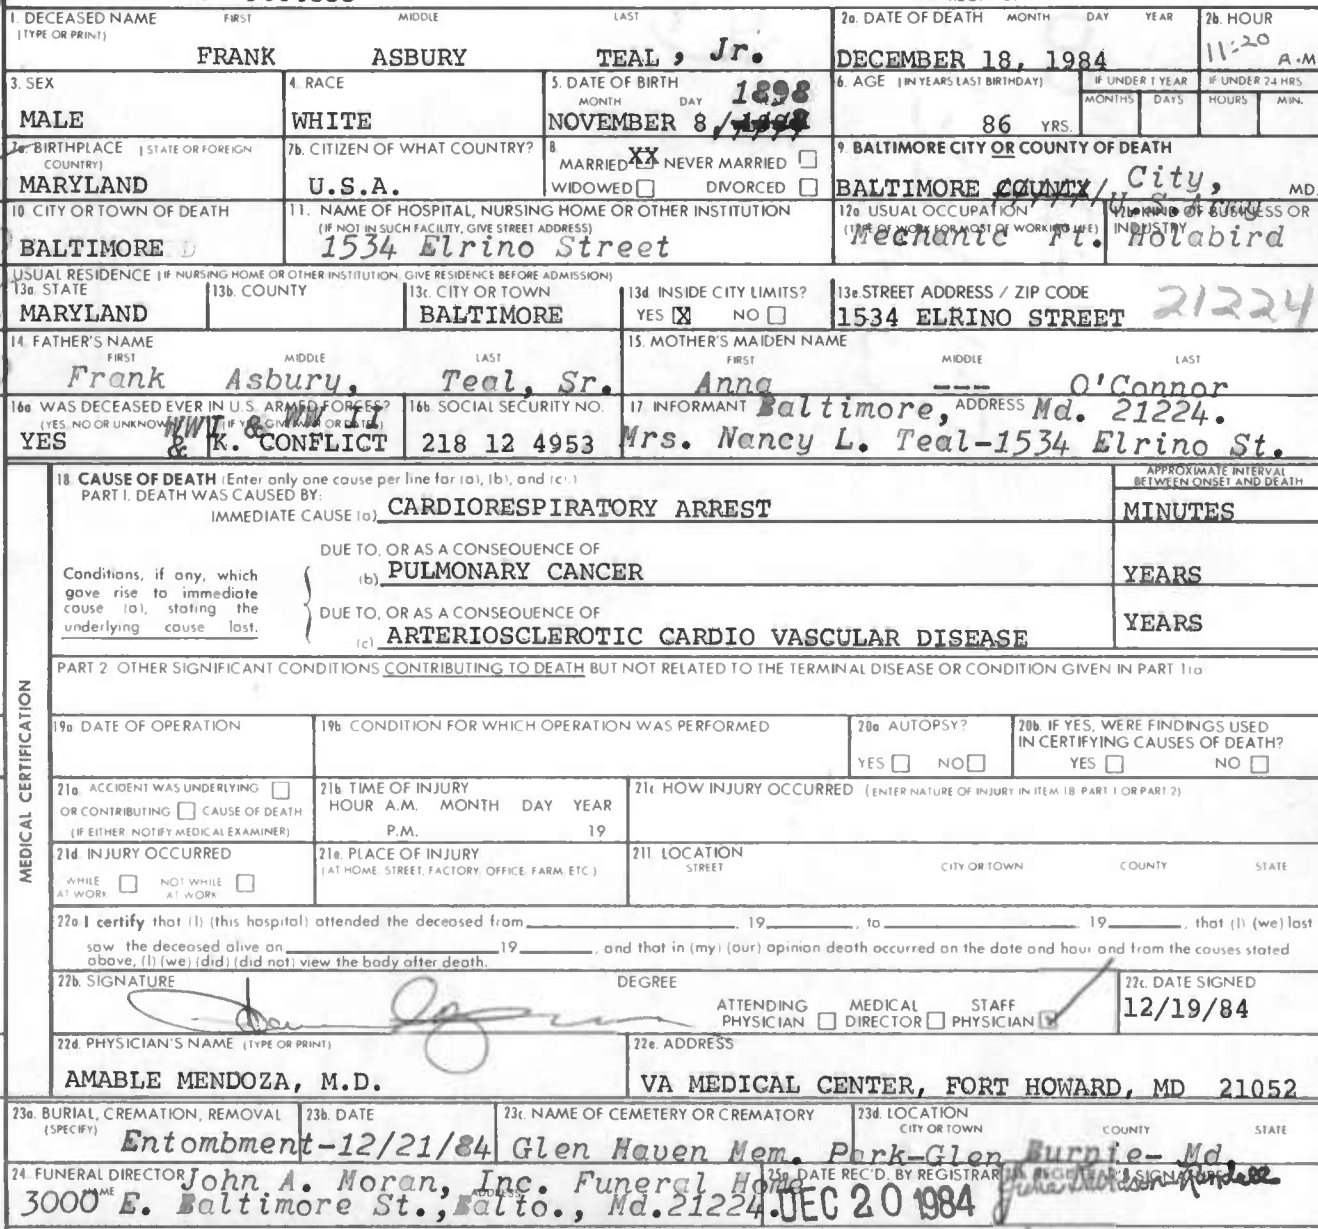 1. DECEASED NAME FIRST MIDDLE LAST
(TYPE OR PRINT)
FRANK ASBURY TEAL, Jr.
2a. DATE OF DEATH MONTH DAY YEAR
DECEMBER 18, 1984
2b. HOUR
11:20 A.M
3. SEX
MALE
4. RACE
WHITE
5. DATE OF BIRTH
MONTH DAY 1898
NOVEMBER 8,
6. AGE (IN YEARS LAST BIRTHDAY)
86 YRS.
IF UNDER 1 YEAR
MONTHS DAYS
IF UNDER 24 HRS
HOURS MIN.
7a. BIRTHPLACE (STATE OR FOREIGN
COUNTRY)
MARYLAND
7b. CITIZEN OF WHAT COUNTRY?
U.S.A.
8
MARRIED XX NEVER MARRIED
WIDOWED DIVORCED
9. BALTIMORE CITY OR COUNTY OF DEATH
BALTIMORE COUNTY/ City, MD.
10 CITY OR TOWN OF DEATH
BALTIMORE
11. NAME OF HOSPITAL, NURSING HOME OR OTHER INSTITUTION
(IF NOT IN SUCH FACILITY, GIVE STREET ADDRESS)
1534 Elrino Street
12a USUAL OCCUPATION
(TYPE OF WORK FOR MOST OF WORKING LIFE)
Mechanic
12b. KIND OF BUSINESS OR
INDUSTRY
U.S. Army
Ft. Holabird
USUAL RESIDENCE (IF NURSING HOME OR OTHER INSTITUTION, GIVE RESIDENCE BEFORE ADMISSION)
13a. STATE
MARYLAND
13b. COUNTY
13c. CITY OR TOWN
BALTIMORE
13d INSIDE CITY LIMITS?
YES X NO
13e. STREET ADDRESS / ZIP CODE
1534 ELRINO STREET 21224
14 FATHER'S NAME
FIRST MIDDLE LAST
Frank Asbury, Teal, Sr.
15. MOTHER'S MAIDEN NAME
FIRST MIDDLE LAST
Anna --- O'Connor
16a WAS DECEASED EVER IN U.S. ARMED FORCES?
(YES, NO OR UNKNOWN) (IF YES, GIVE WAR OR DATES)
WWI & WW II
YES & K. CONFLICT
16b SOCIAL SECURITY NO.
218 12 4953
17 INFORMANT Baltimore, ADDRESS Md. 21224.
Mrs. Nancy L. Teal-1534 Elrino St.
MEDICAL CERTIFICATION
18 CAUSE OF DEATH (Enter only one cause per line for (a), (b), and (c).)
PART I. DEATH WAS CAUSED BY:
APPROXIMATE INTERVAL
BETWEEN ONSET AND DEATH
IMMEDIATE CAUSE (a) CARDIORESPIRATORY ARREST MINUTES
Conditions, if any, which
gave rise to immediate
cause (a), stating the
underlying cause last.
DUE TO, OR AS A CONSEQUENCE OF
(b) PULMONARY CANCER YEARS
DUE TO, OR AS A CONSEQUENCE OF
(c) ARTERIOSCLEROTIC CARDIO VASCULAR DISEASE YEARS
PART 2 OTHER SIGNIFICANT CONDITIONS CONTRIBUTING TO DEATH BUT NOT RELATED TO THE TERMINAL DISEASE OR CONDITION GIVEN IN PART 1(a
19a DATE OF OPERATION
19b CONDITION FOR WHICH OPERATION WAS PERFORMED
20a AUTOPSY?
YES NO
20b. IF YES, WERE FINDINGS USED
IN CERTIFYING CAUSES OF DEATH?
YES NO
21a. ACCIDENT WAS UNDERLYING
OR CONTRIBUTING CAUSE OF DEATH
(IF EITHER NOTIFY MEDICAL EXAMINER)
21b. TIME OF INJURY
HOUR A.M. MONTH DAY YEAR
P.M. 19
21c HOW INJURY OCCURRED (ENTER NATURE OF INJURY IN ITEM 18 PART 1 OR PART 2)
21d. INJURY OCCURRED
WHILE AT WORK NOT WHILE AT WORK
21e. PLACE OF INJURY
(AT HOME, STREET, FACTORY, OFFICE, FARM, ETC.)
21f LOCATION
STREET CITY OR TOWN COUNTY STATE
22a I certify that (I) (this hospital) attended the deceased from 19 , to 19 , that (I) (we) last
saw the deceased alive on 19 , and that in (my) (our) opinion death occurred on the date and hour and from the causes stated
above, (I) (we) (did) (did not) view the body after death.
22b. SIGNATURE DEGREE
ATTENDING PHYSICIAN MEDICAL DIRECTOR STAFF PHYSICIAN
22c. DATE SIGNED
12/19/84
22d. PHYSICIAN'S NAME (TYPE OR PRINT)
AMABLE MENDOZA, M.D.
22e. ADDRESS
VA MEDICAL CENTER, FORT HOWARD, MD 21052
23a. BURIAL, CREMATION, REMOVAL
(SPECIFY)
23b. DATE
Entombment-12/21/84
23c. NAME OF CEMETERY OR CREMATORY
23d. LOCATION
CITY OR TOWN COUNTY STATE
Glen Haven Mem. Park-Glen Burnie- Md.
24 FUNERAL DIRECTOR John A. Moran, Inc. Funeral Home
NAME ADDRESS
3000 E. Baltimore St., Balto., Md.21224.
25a DATE REC'D. BY REGISTRAR
DEC 20 1984